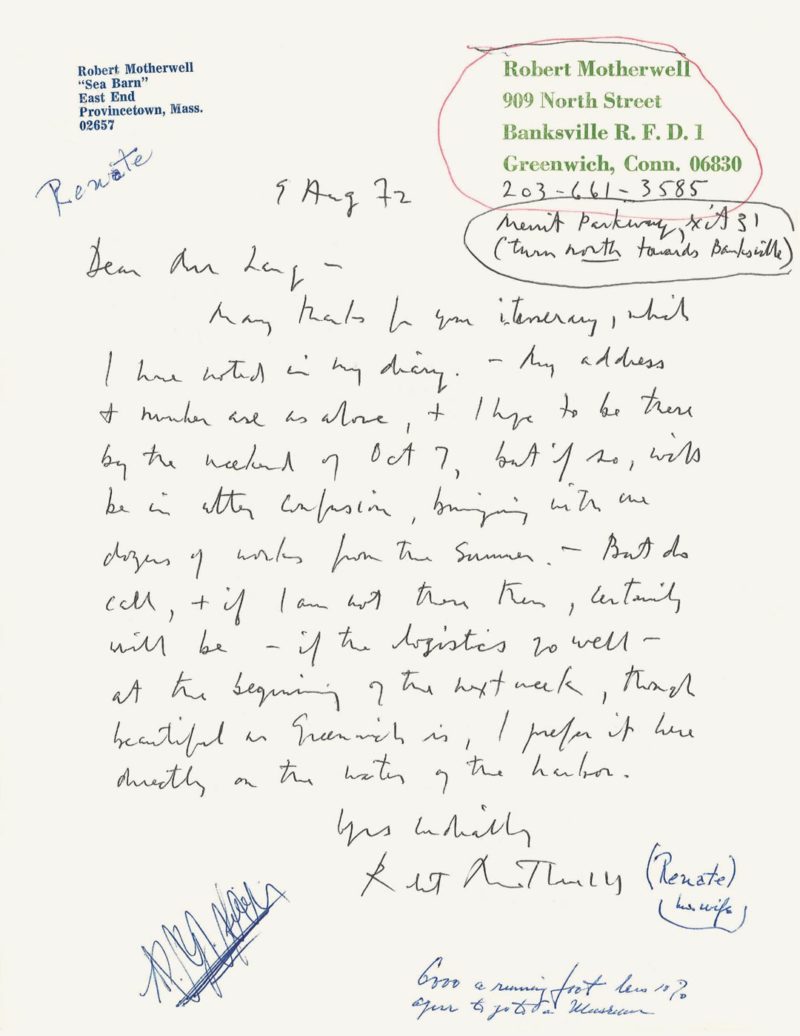 Robert Motherwell
"Sea Barn"
East End
Provincetown, Mass.
02657
Robert Motherwell
909 North Street
Banksville R. F. D. 1
Greenwich, Conn. 06830
203-661-3585
Merrit Parkway, xit 31
(turn north towards Banksville)
Renate
9 Aug 72
Dear Mr Lang —
Many thanks for your itinerary, which
I have noted in my diary. — My address
+ number are as above, + I hope to be there
by the weekend of Oct 7, but if so, will
be in utter confusion, bringing with me
dozens of works from the summer. — But do
call, + if I am not there then, certainly
will be — if the logistics go well —
at the beginning of the next week, though
beautiful as Greenwich is, I prefer it here
directly on the water of the harbor.
Yrs cordially
Robert Motherwell
(Renate)
his wife
6000 a running foot less 10%
to a Museum